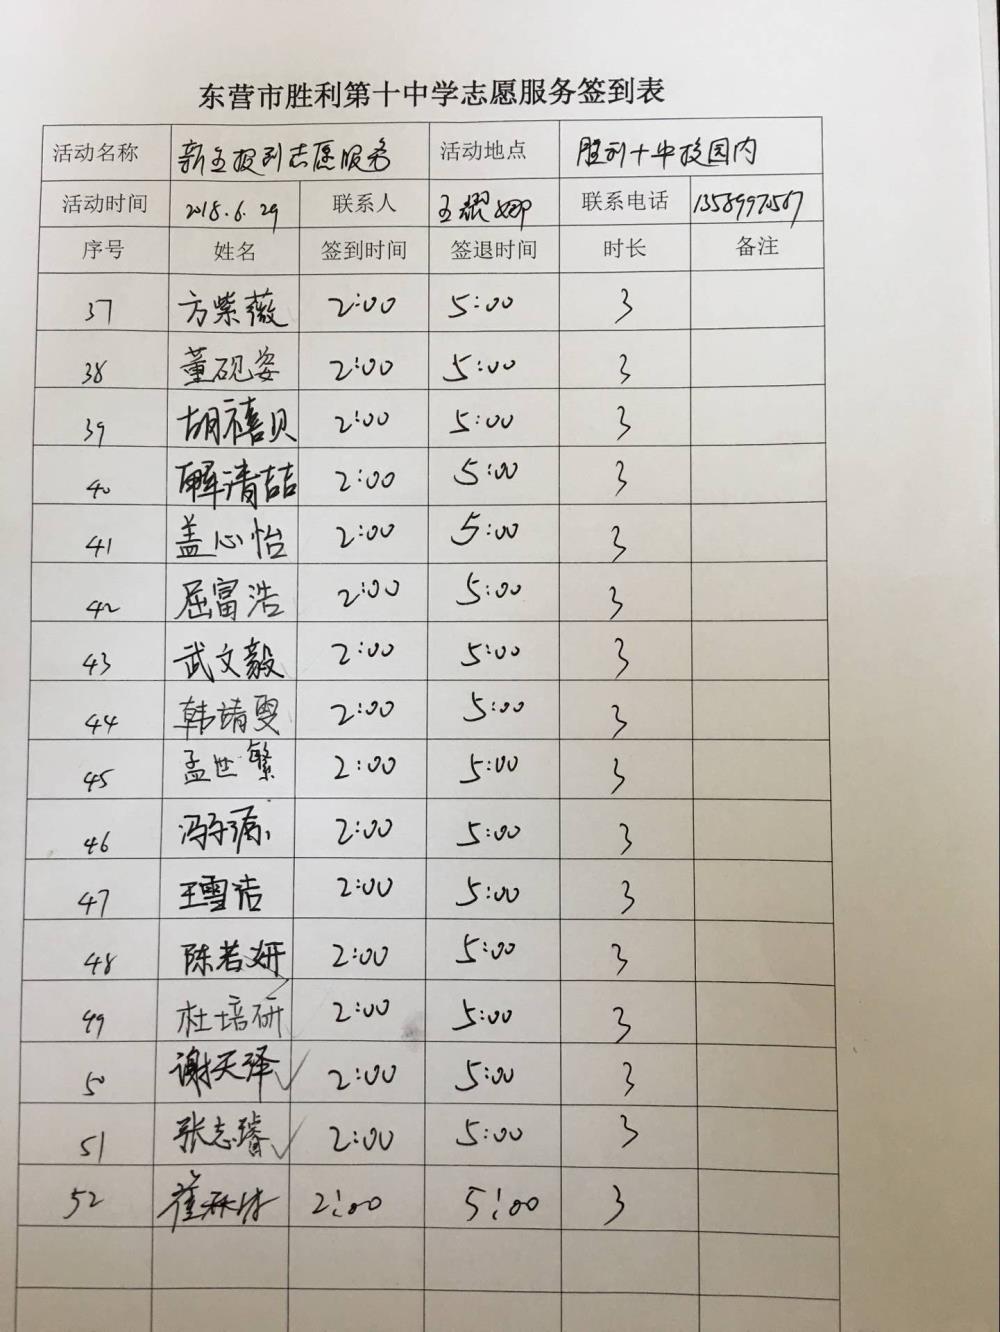 东营市胜利第十中学志愿服务签到表
活动名称 新生报到志愿服务 活动地点 胜利十中校园内
活动时间 2018.6.29 联系人 王耀娜 联系电话
序号 姓名 签到时间 签退时间 时长 备注
37 方紫薇 2:00 5:00 3
38 董砚姿 2:00 5:00 3
39 胡禧贝 2:00 5:00 3
40 解清喆 2:00 5:00 3
41 盖心怡 2:00 5:00 3
42 屈富浩 2:00 5:00 3
43 武文毅 2:00 5:00 3
44 韩靖雯 2:00 5:00 3
45 孟世繁 2:00 5:00 3
46 冯子源 2:00 5:00 3
47 王雪洁 2:00 5:00 3
48 陈若妍 2:00 5:00 3
49 杜培研 2:00 5:00 3
50 谢天泽 2:00 5:00 3
51 张志璿 2:00 5:00 3
52 2:00 5:00 3